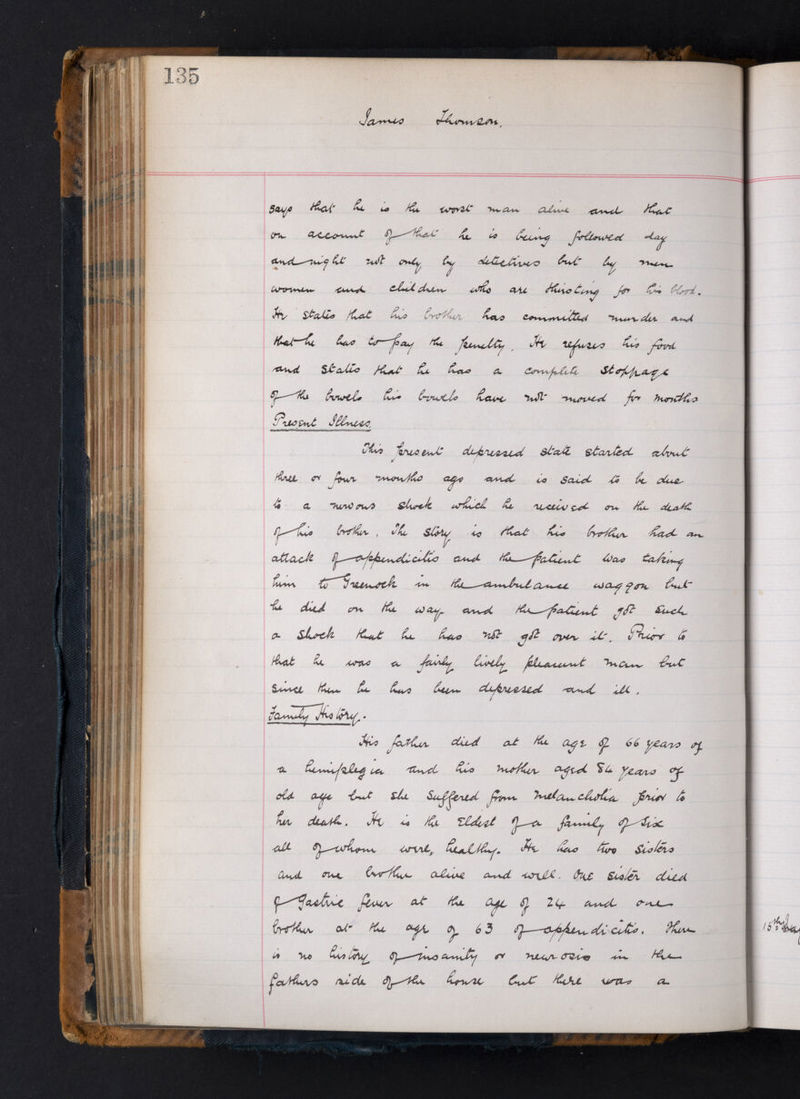 135
James Thomson.
says that he is the worst man alive and that
on account of that he is being followed day
and night not only by detectives but by men
women and children who are thirsting for his blood.
He states that his brother has committed murder and
that he has to pay the penelty. He refuses his food
and states that he has a complete stoppage
of the bowels his bowels have not moved for months
Present Illness.
This present depressed state started about
three or four months ago and is said to be due
to a nervous shock which he received on the death
of his brother. The story is that his brother had an
attack of appendicitis and the patient was taking
him to Greenock in the ambulance waggon but
he died on the way and the patient got such
a shock that he has not got over it. Prior to
that he was a fairly lively pleasant man but
since then he has been depressed and ill.
Family History.
His father died at the age of 66 years of
a hemiplegia and his mother aged 84 years of
old age but she suffered from melancholia prior to
her death. He is the eldest of a family of six
all of whom were, healthy. He has two sisters
and one brother alive and well. One sister died
of Gastric fever at the age of 24 and one
brother at the age of 63 of appendicitis. There
is no history of insanity or neurosis in the
fathers side of the house but there was a
15th